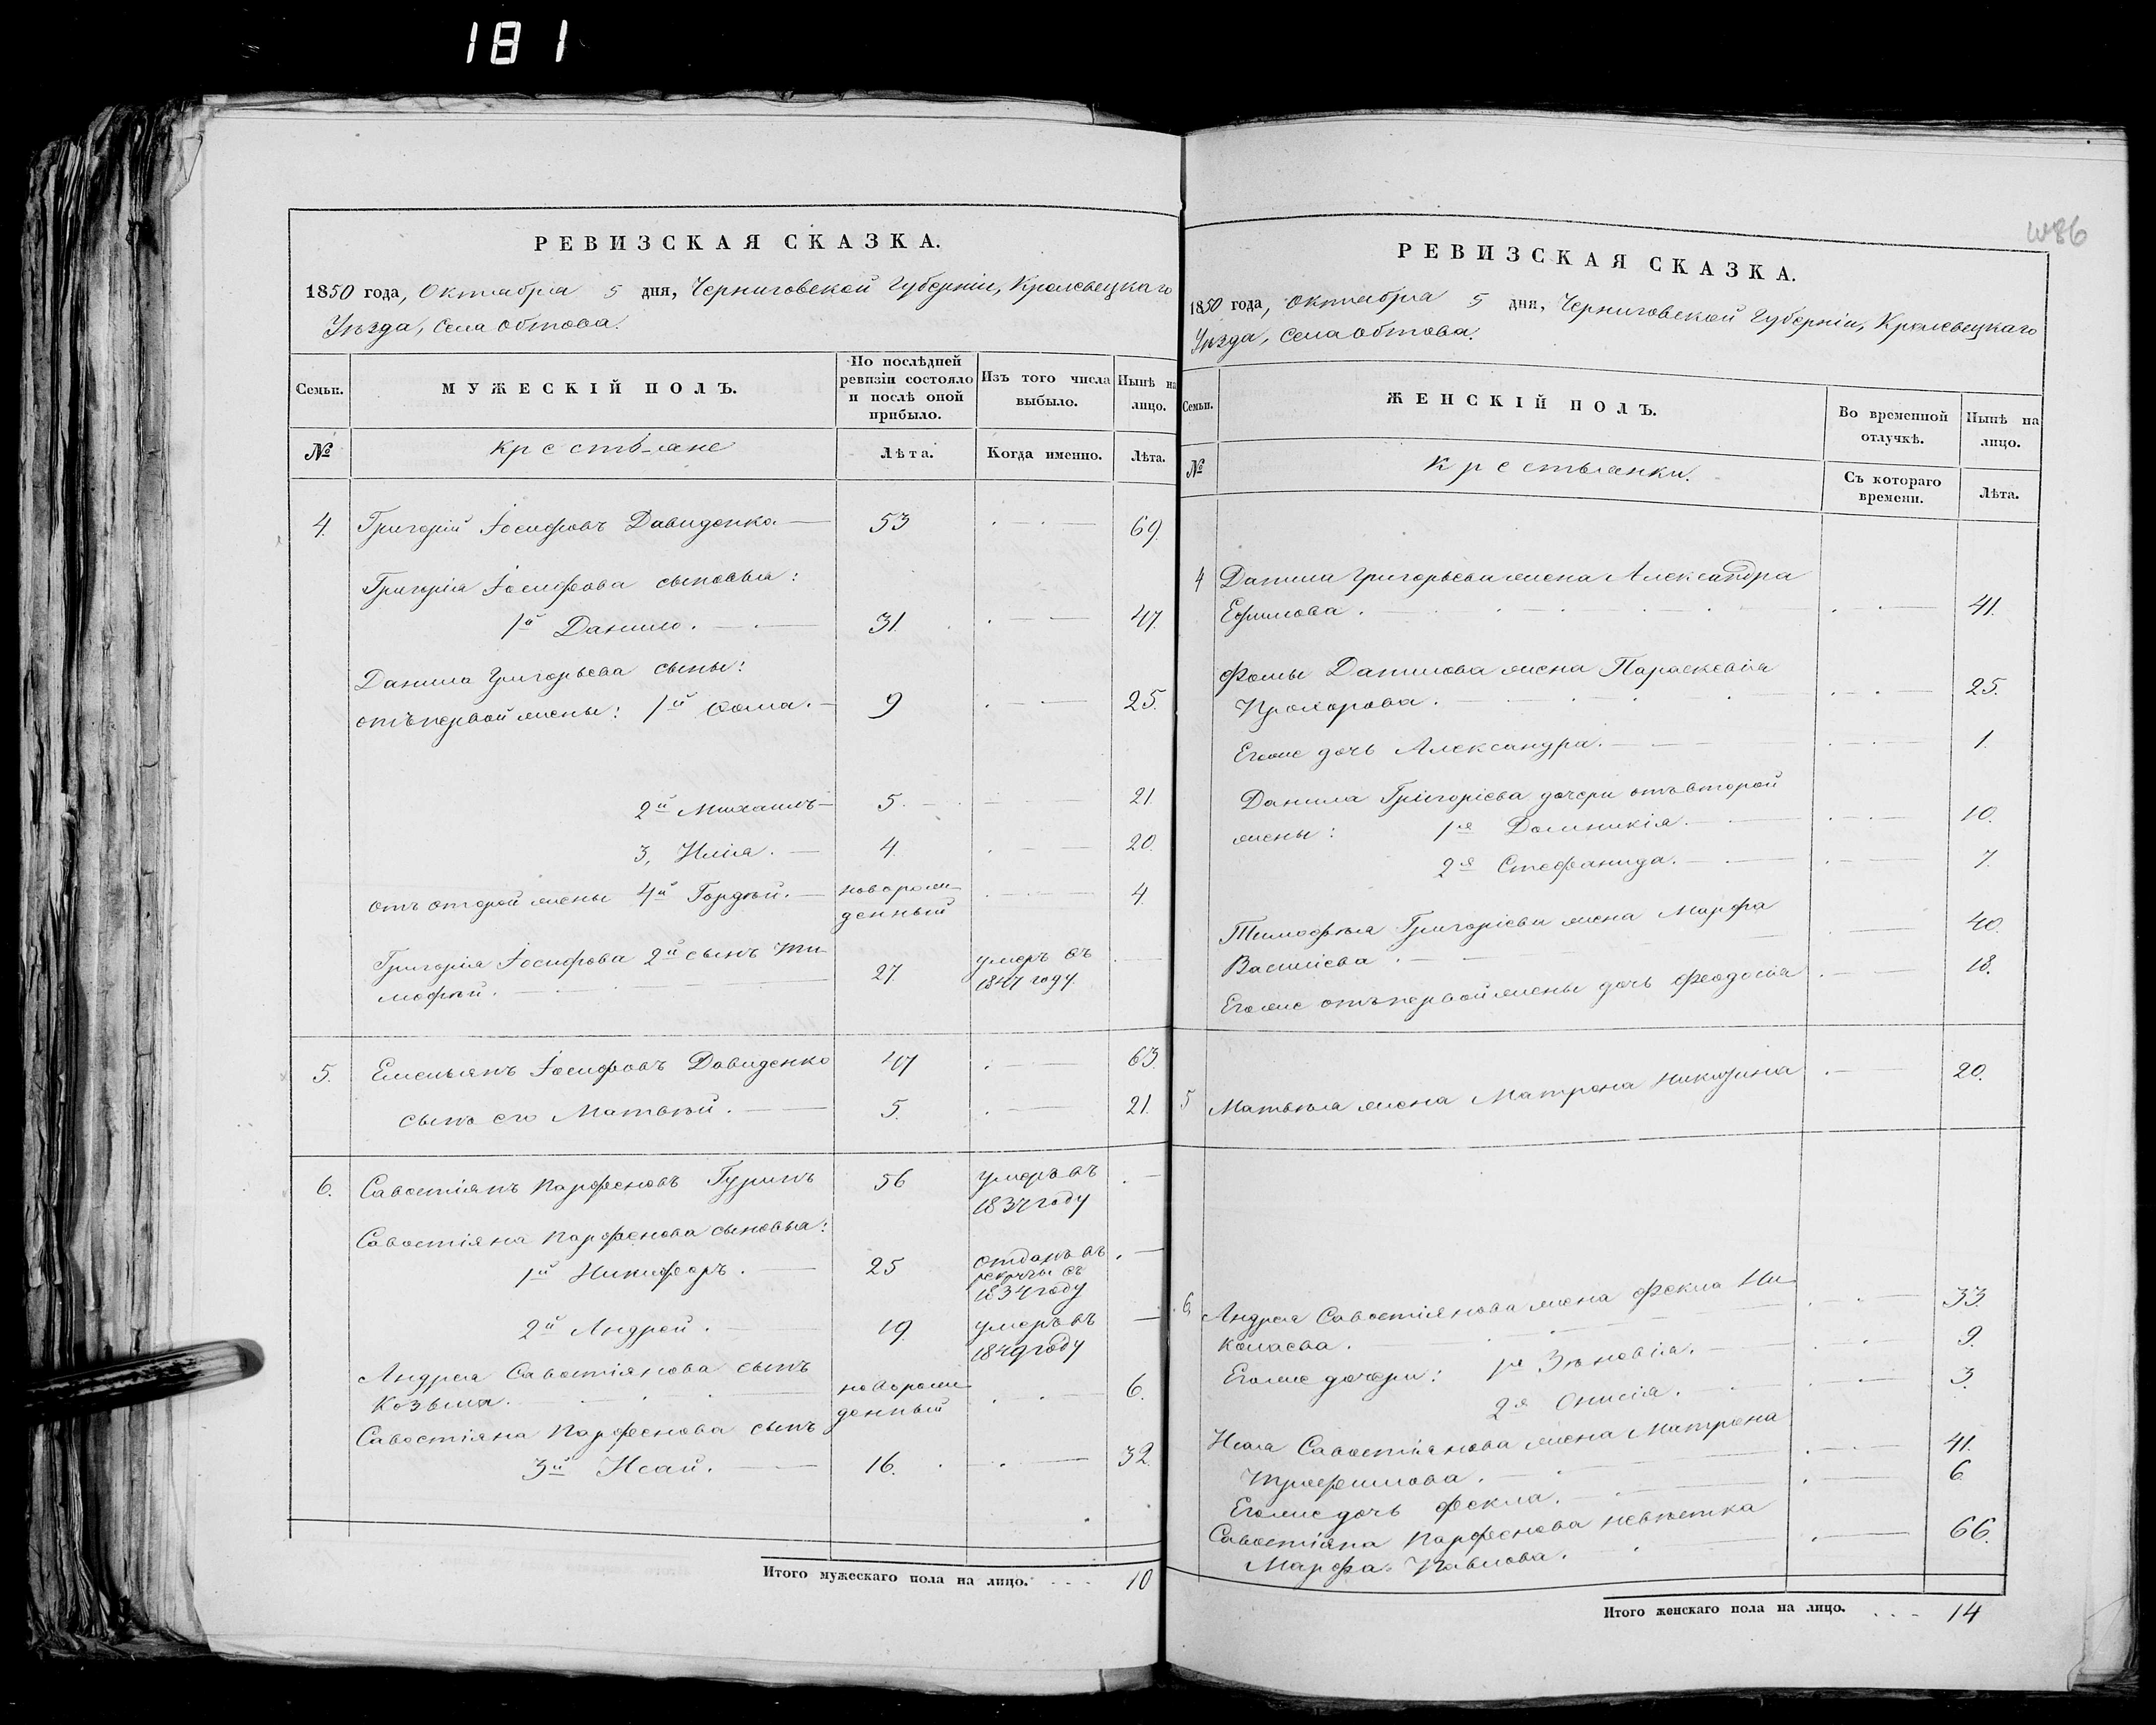 181
РЕВИЗСКАЯ СКАЗКА.
1850 года, Октября 5 дня, Черниговской Губерніи, Кролевецкаго
Уѣзда, Села Обтова.
Семьи.
МУЖЕСКІЙ ПОЛЪ.
По послѣдней ревизіи состояло и послѣ оной прибыло.
Изъ того числа выбыло.
Нынѣ на лицо.
№
Крестьяне
Лѣта.
Когда именно.
Лѣта.
4. Григорій Іосифовъ Давиденко — 53 69.
Григорія Іосифова сыновья:
1й Данило. 31. 47.
Данила Григорьева сыны:
отъ первой жены: 1й Ѳома. 9 25.
2й Михаилъ 5. 21.
3, Илія. 4. 20.
отъ второй жены 4й Гордѣй. новорож- 4.
денный
Григорія Іосифова 2й сынъ Ти- умеръ въ
мофѣй. 27. 1847 году.
5. Емельянъ Іосифовъ Давиденко 47 63.
сынъ его Матвѣй. 5. 21.
6. Савостіянъ Парфеновъ Гуринъ 56 умеръ въ
1837 году
Савостіяна Парфенова сыновья:
1й Никифоръ. 25 отданъ въ
рекруты въ
1834 году
2й Андрей. 19. умеръ въ
1849 году
Андрея Савостіянова сынъ
Козьма. новорож- 6.
денный
Савостіяна Парфенова сынъ
3й Исай. 16. 32.
Итого мужескаго пола на лицо. 10
РЕВИЗСКАЯ СКАЗКА.
1850 года, Октября 5 дня, Черниговской Губерніи, Кролевецкаго
Уѣзда, Села Обтова.
Семьи.
ЖЕНСКІЙ ПОЛЪ.
Во временной отлучкѣ.
Нынѣ на лицо.
№
Крестьянки.
Съ котораго времени.
Лѣта.
4 Данила Григорьева жена Александра
Ефимова. 41.
Фомы Данилова жена Параскевія
Прохорова. 25.
Его же дочь Александра. 1.
Данила Григоріева дочери отъ второй
жены: 1я Домникія. 10.
2я Стефанида. 7.
Тимофѣя Григоріева жена Марфа
Василіева. 40.
Его же отъ первой жены дочь Феодосія 18.
5 Матвѣя жена Матрона Никифорова 20.
6. Андрея Савостіянова жена Фекла Ни-
колаева. 33.
Его же дочери: 1я Зѣновія. 9.
2я Онисія. 3.
Исая Савостіянова жена Матрона
Трофимова. 41.
Его же дочь Фекла. 6.
Савостіяна Парфенова невѣстка
Марфа Павлова. 66.
Итого женскаго пола на лицо. 14